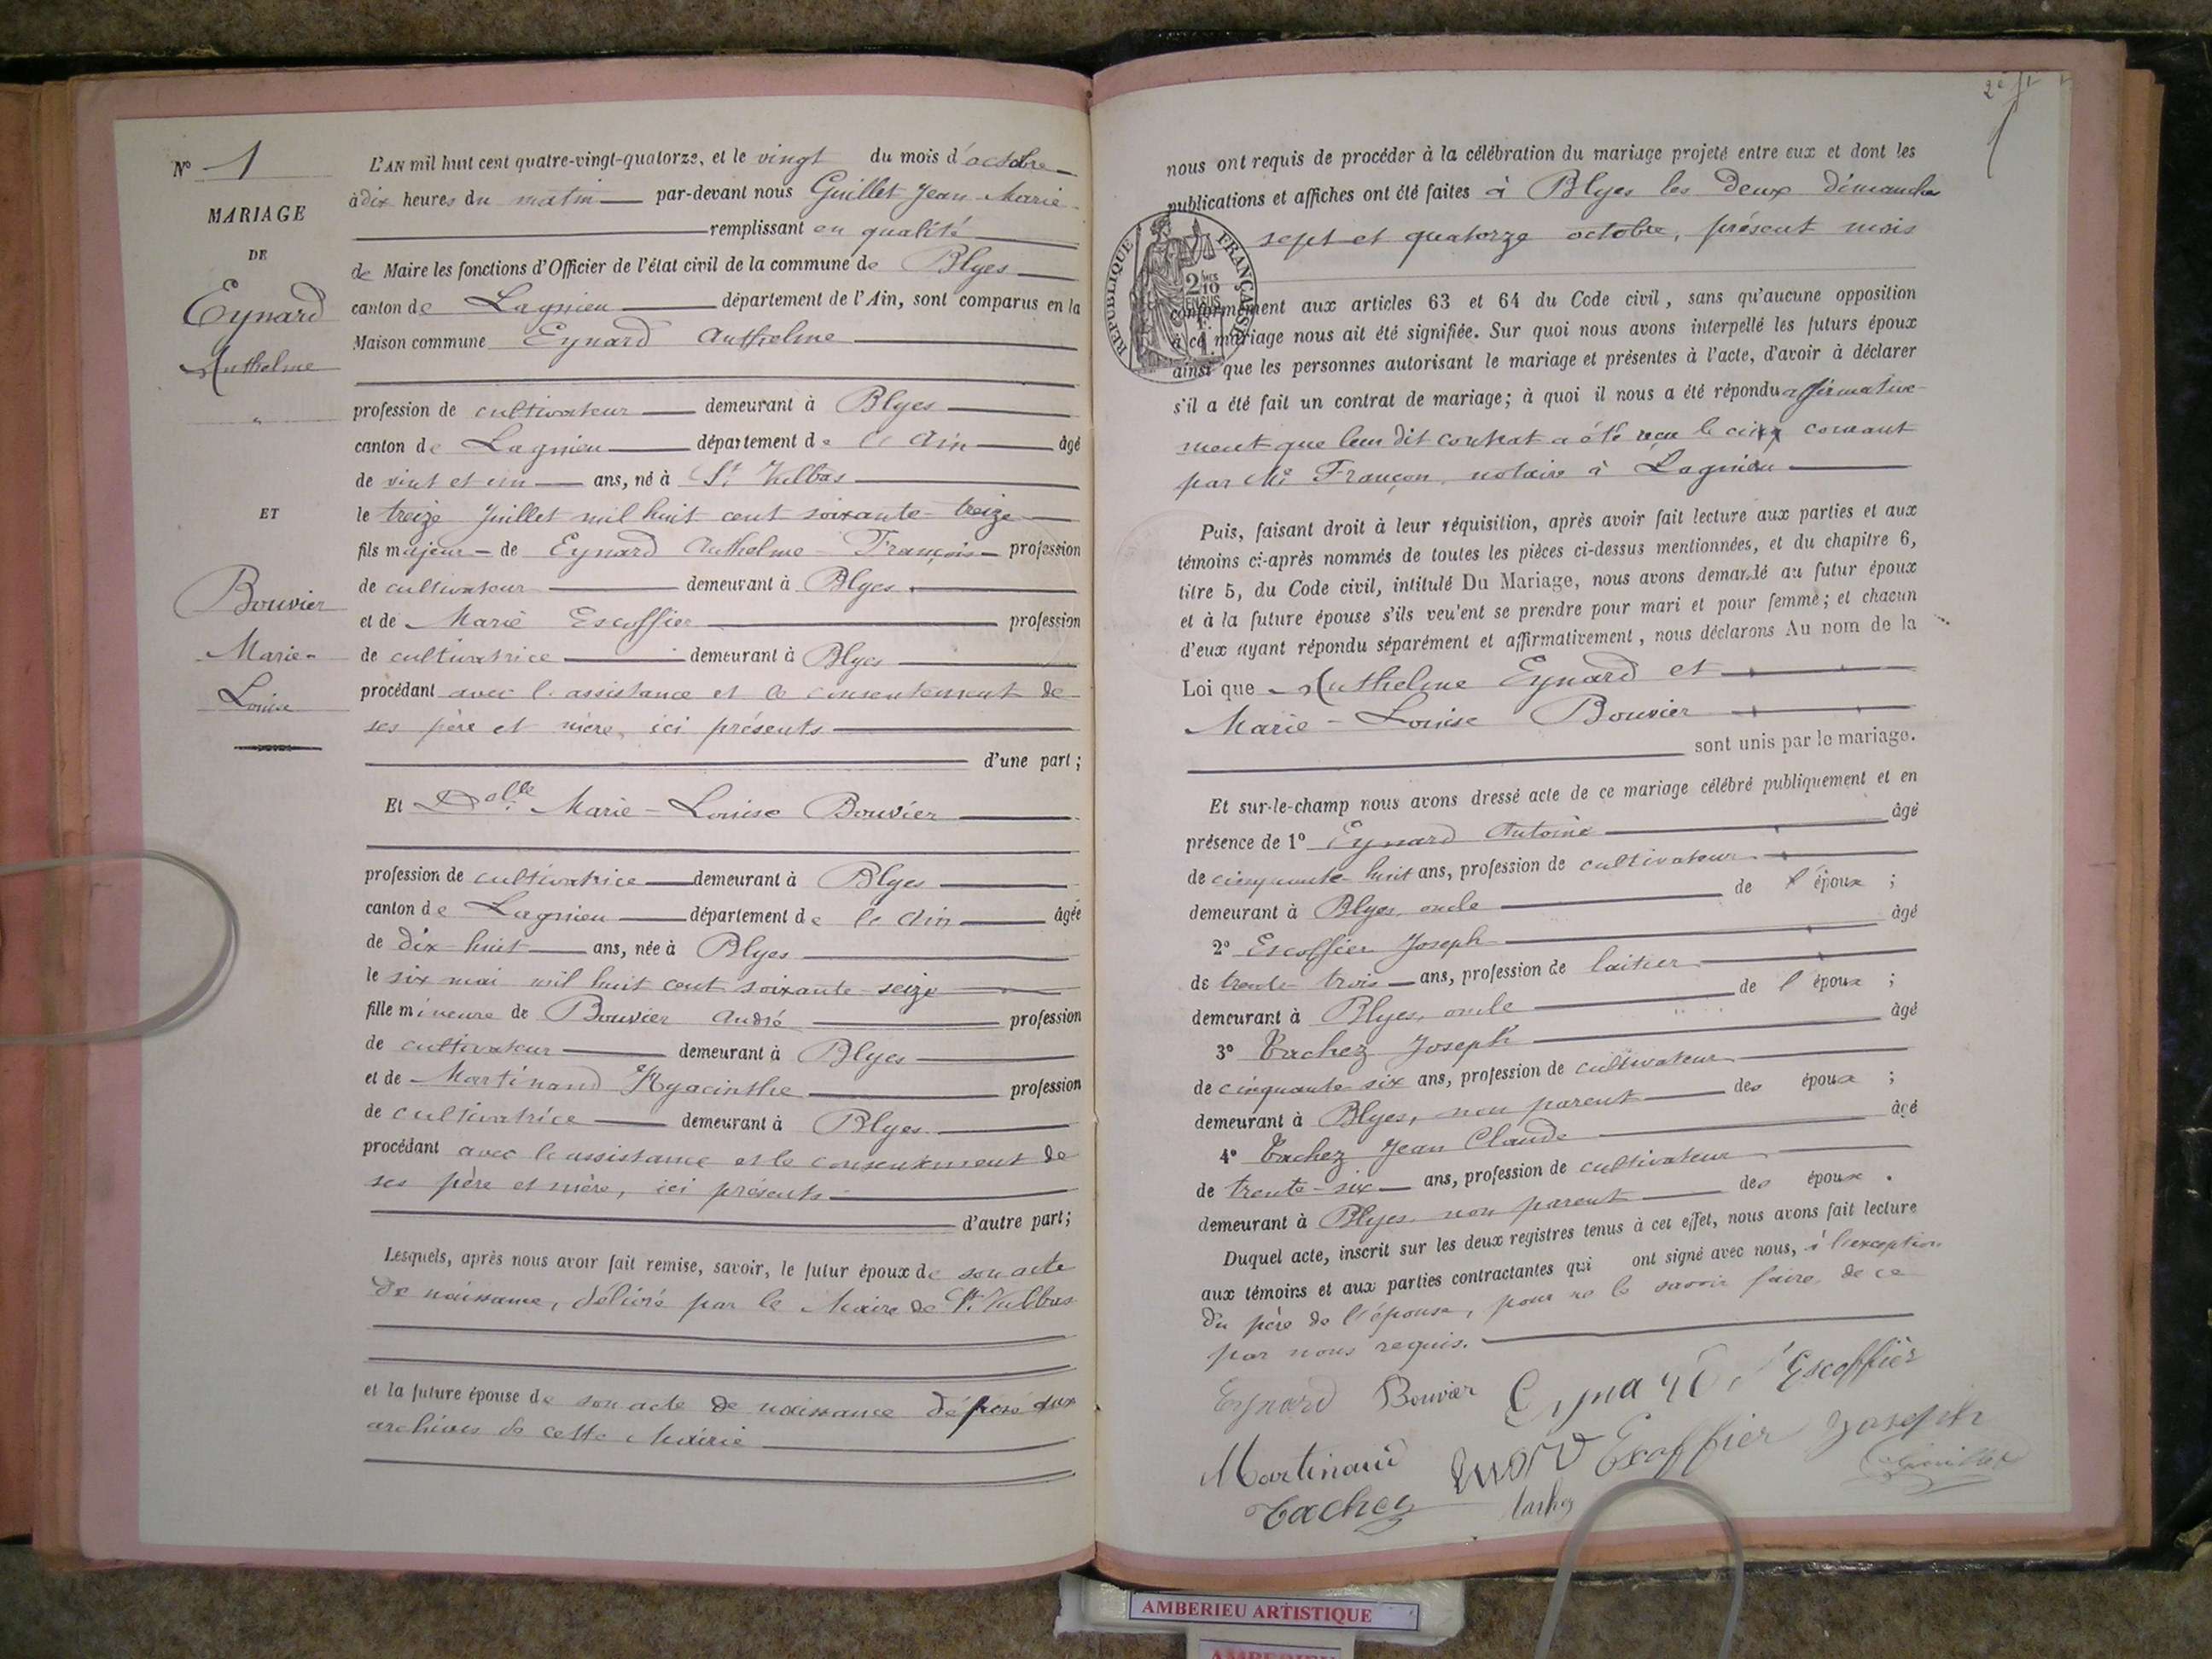 N° 1
MARIAGE
DE
Eynard
Anthelme
"
ET
Bouvier
Marie-
Louise
L'AN mil huit cent quatre-vingt-quatorze, et le vingt du mois d'octobre
à dix heures du matin par-devant nous Guillet Jean Marie
remplissant en qualité
de Maire les fonctions d'Officier de l'état civil de la commune de Blyes
canton de Lagnieu département de l'Ain, sont comparus en la
Maison commune Eynard Anthelme
profession de cultivateur demeurant à Blyes
canton de Lagnieu département de l'Ain âgé
de vint et un ans, né à St Vulbas
le treize Juillet mil huit cent soixante-treize
fils majeur de Eynard Anthelme François profession
de cultivateur demeurant à Blyes
et de Marie Escoffier profession
de cultivatrice demeurant à Blyes
procédant avec l'assistance et le consentement de
ses père et mère, ici présents
d'une part;
Et Delle Marie-Louise Bouvier
profession de cultivatrice demeurant à Blyes
canton de Lagnieu département de l'Ain âgée
de dix huit ans, née à Blyes
le six mai mil huit cent soixante-seize
fille mineure de Bouvier André profession
de cultivateur demeurant à Blyes
et de Martinand Hyacinthe profession
de cultivatrice demeurant à Blyes
procédant avec l'assistance et le consentement de
ses père et mère, ici présents
d'autre part;
Lesquels, après nous avoir fait remise, savoir, le futur époux de son acte
de naissance, délivré par le Maire de St. Vulbas
et la future épouse de son acte de naissance déposé aux
archives de cette Mairie
2e
nous ont requis de procéder à la célébration du mariage projeté entre eux et dont les
publications et affiches ont été faites à Blyes les deux dimanches
sept et quatorze octobre, présent mois
RÉPUBLIQUE FRANÇAISE
2/10 EN SUS
conformément aux articles 63 et 64 du Code civil, sans qu'aucune opposition
à ce mariage nous ait été signifiée. Sur quoi nous avons interpellé les futurs époux
ainsi que les personnes autorisant le mariage et présentes à l'acte, d'avoir à déclarer
s'il a été fait un contrat de mariage; à quoi il nous a été répondu affirmative-
ment que leur dit contrat a été reçu le cinq courant
par Me Françon, notaire à Lagnieu
Puis, faisant droit à leur réquisition, après avoir fait lecture aux parties et aux
témoins ci-après nommés de toutes les pièces ci-dessus mentionnées, et du chapitre 6,
titre 5, du Code civil, intitulé Du Mariage, nous avons demandé au futur époux
et à la future épouse s'ils veulent se prendre pour mari et pour femme; et chacun
d'eux ayant répondu séparément et affirmativement, nous déclarons Au nom de la
Loi que Anthelme Eynard et
Marie-Louise Bouvier
sont unis par le mariage.
Et sur-le-champ nous avons dressé acte de ce mariage célébré publiquement et en
présence de 1° Eynard Antoine âgé
de cinquante-huit ans, profession de cultivateur
demeurant à Blyes, oncle de l'époux;
2° Escoffier Joseph âgé
de trente trois ans, profession de laitier
demeurant à Blyes, oncle de l'époux;
3° Tachez Joseph âgé
de cinquante-six ans, profession de cultivateur
demeurant à Blyes, non parent des époux;
4° Tachez Jean Claude âgé
de trente-six ans, profession de cultivateur
demeurant à Blyes, non parent des époux.
Duquel acte, inscrit sur les deux registres tenus à cet effet, nous avons fait lecture
aux témoins et aux parties contractantes qui ont signé avec nous, à l'exception
du père de l'épouse, pour ne le savoir faire, de ce
par nous requis.
Eynard Bouvier Eynard Escoffier
Martinand Escoffier Joseph
Guillet
Tachez Tachez
AMBERIEU ARTISTIQUE
AMBERIEU